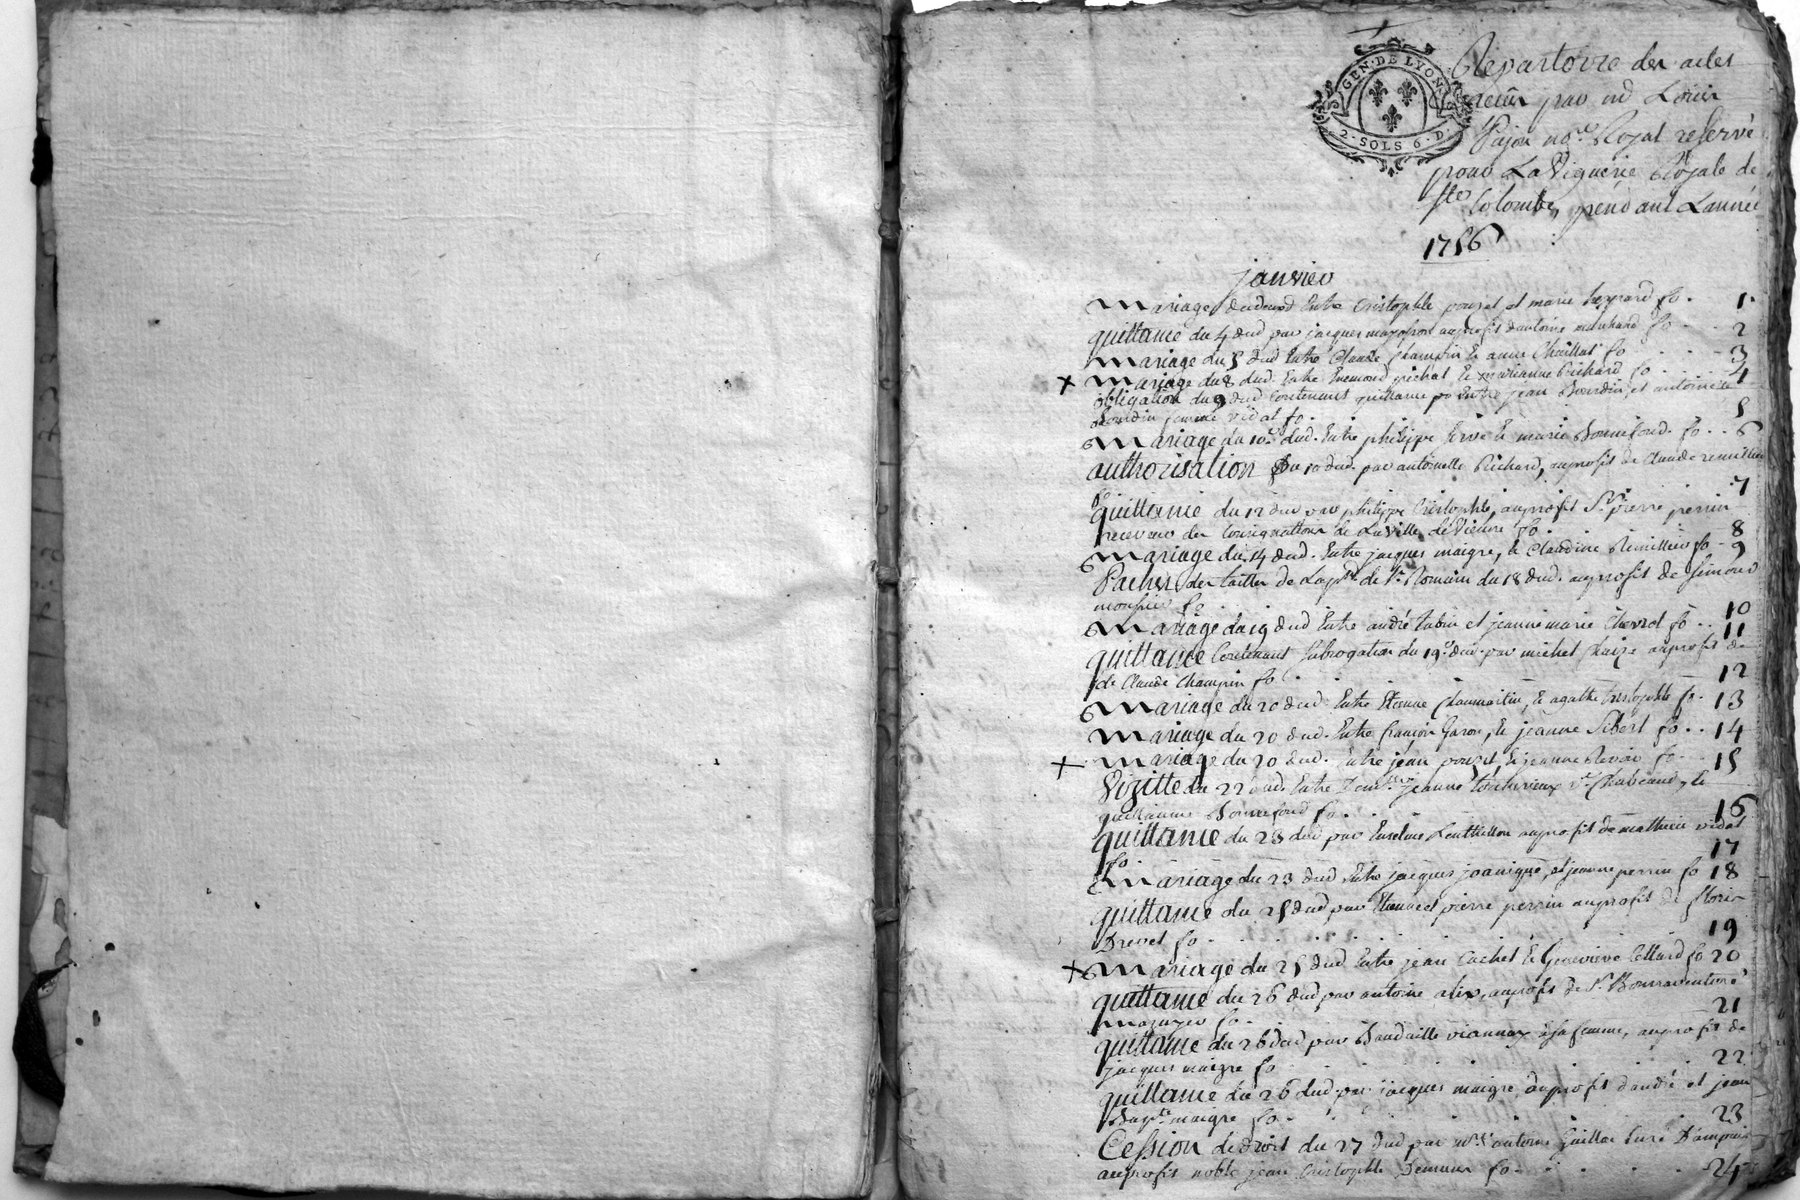 GEN · DE LYON
2 · SOLS 6 · D ·
Repartoire des actes
recûs par
Pajon no.re Royal reservé
pour La Viguerie Royale de
Ste Colombe, pendant Lannée
1756
janvier
Mariage dudud Entre Cristophle pouzet et marie fo. 1.
quittance du 4 dud par jacques au profit dantoine marchand fo 2
Mariage du 5 dud Entre Claude Champin & anne Chaillat fo 3
+ Mariage du 8 dud. Entre Enemond pichat & marianne Richard fo 4
obligation du 9 dud Contenant quittance po Entre jean Bourdin et antoine
Bourdin jeanne vidal fo. 5
Mariage du 10.e dud. Entre philippe & marie Bonnefond. fo . . 6
authorisation Du 10 dud. par antoinette Richard, au profit de Claude remillier
fo 7
quittance du 12 dud par philippe Cristophle, au profit Sr pierre perrin
receveur des Consignations de La Ville de Vienne fo . 8
Mariage du 14 dud. Entre jacques maigre, & Claudine Remillier fo - 9
des tailles de La psse de St Romain du 18 dud. au profit de Simond
fo 10
Mariage du 19 dud Entre andré et jeanne marie fo . . 11
quittance Contenant Subrogation du 19.e dud. par michel Chaize au profit de
de Claude Champin fo . 12
Mariage du 20 dud Entre Etienne Chaumartin, & agathe Cristophle fo . 13
Mariage du 20 dud. Entre françois Garon, & jeanne Sibert fo . . 14
+ Mariage du 20 dud. Entre jean pouzet, & jeanne Revoir fo . 15
Vizitte du 22 dud. Entre jeanne ve Chabeaud, &
guillaume Bonnefond fo . 16
quittance du 23 dud par au profit de mathieu vidal
fo 17
Mariage du 23 dud Entre jacques et jeanne perrin fo 18
quittance du 25 dud par Etienne et pierre perrin au profit de floris
Drevet fo . 19
+ Mariage du 25 dud Entre jean Cachet & Genevieve Cellard fo 20
quittance du 26 dud par antoine alix, au profit de Sr Bonnaventure
mazuyer fo . 21
quittance du 26 dud par viannax & sa femme, au profit de
jacques maigre fo 22
quittance du 26 dud par jacques maigre, au profit dandré et jean
Bap.te maigre fo . 23
Cession de droit du 27 dud par antoine Guillot Curé Dampuis
au profit noble jean Cristophle fo . 24